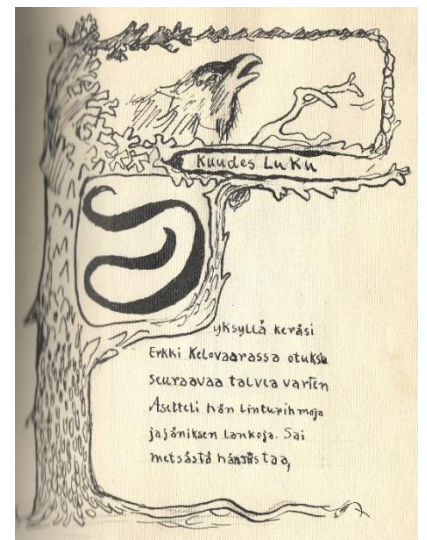 Kuudes Luku
S
yksyllä keräsi
Erkki Kelovaarassa otuksia
seuraavaa talvea varten
Asetteli hän linturihmoja
ja jäniksen lankoja. Sai
metsästä